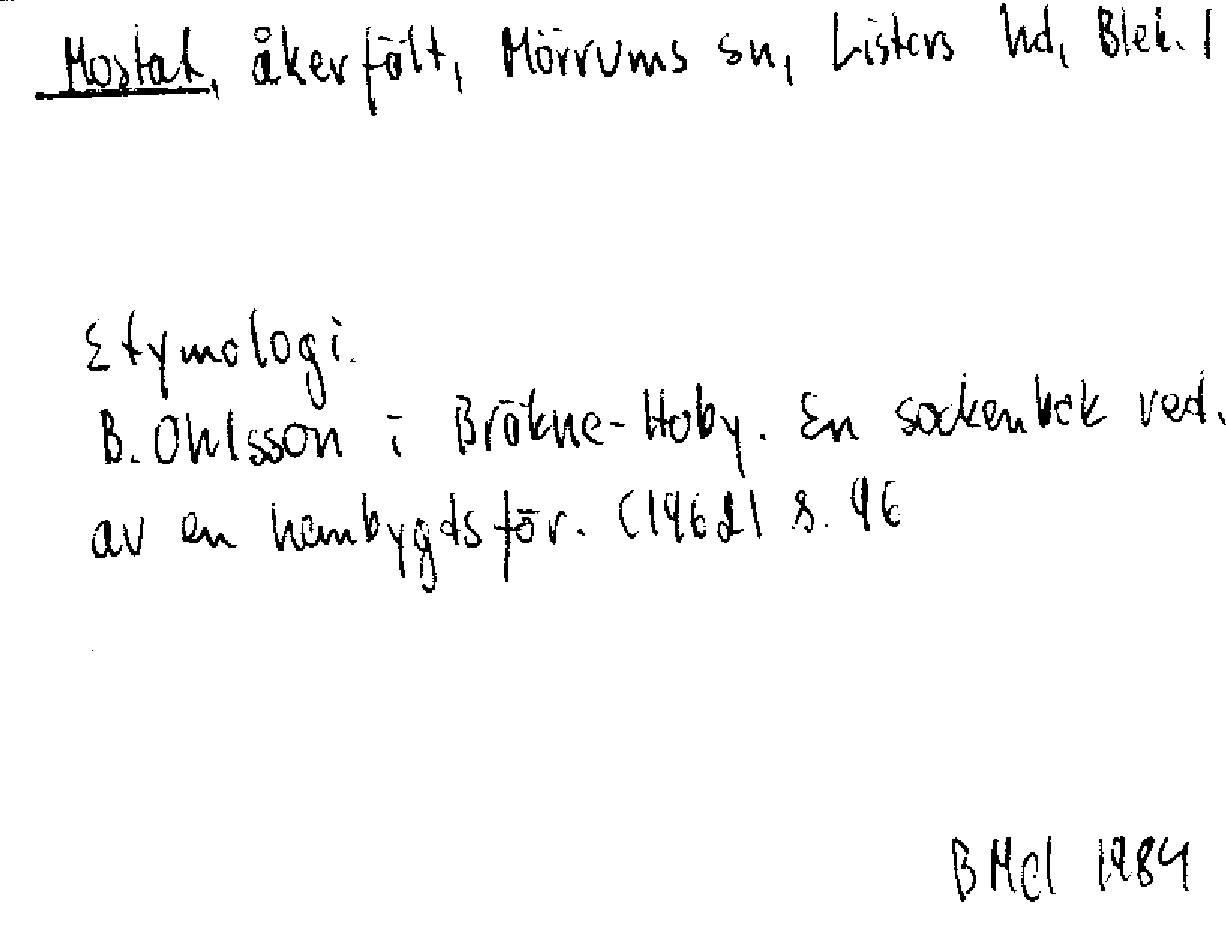 Mostat, åkerfält, Mörrums sn, Listers hd, Blek. l
Etymologi.
B. Ohlsson i Bräkne-Hoby. En sockenbok red.
av en hembygdsför. (1962) s. 96
1984